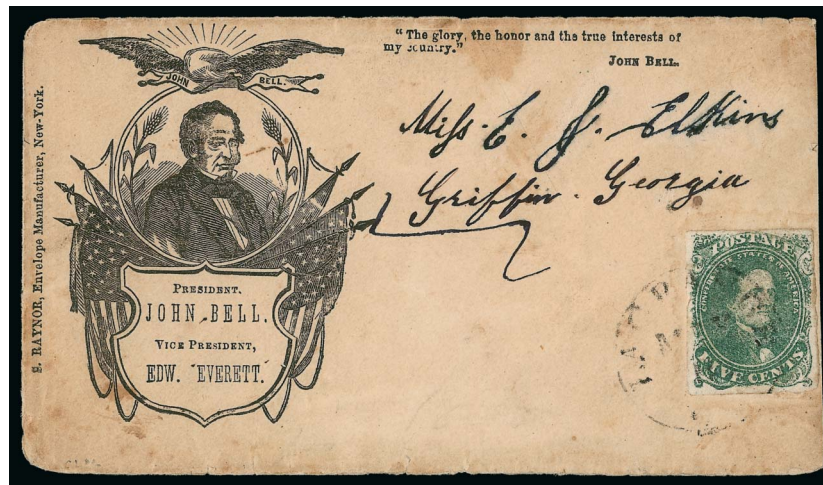 JOHN BELL.
S. RAYNOR, Envelope Manufacturer, New-York.
PRESIDENT,
JOHN BELL.
VICE PRESIDENT,
EDW. EVERETT.
"The glory, the honor and the true interests of
my country."
JOHN BELL.
Miss. E. J. Elkins
Griffin. Georgia
POSTAGE
CONFEDERATE STATES OF AMERICA
FIVE CENTS